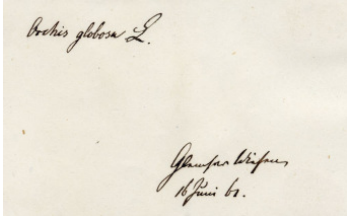 Orchis globosa L.
Wiesen
16 Juni 61.